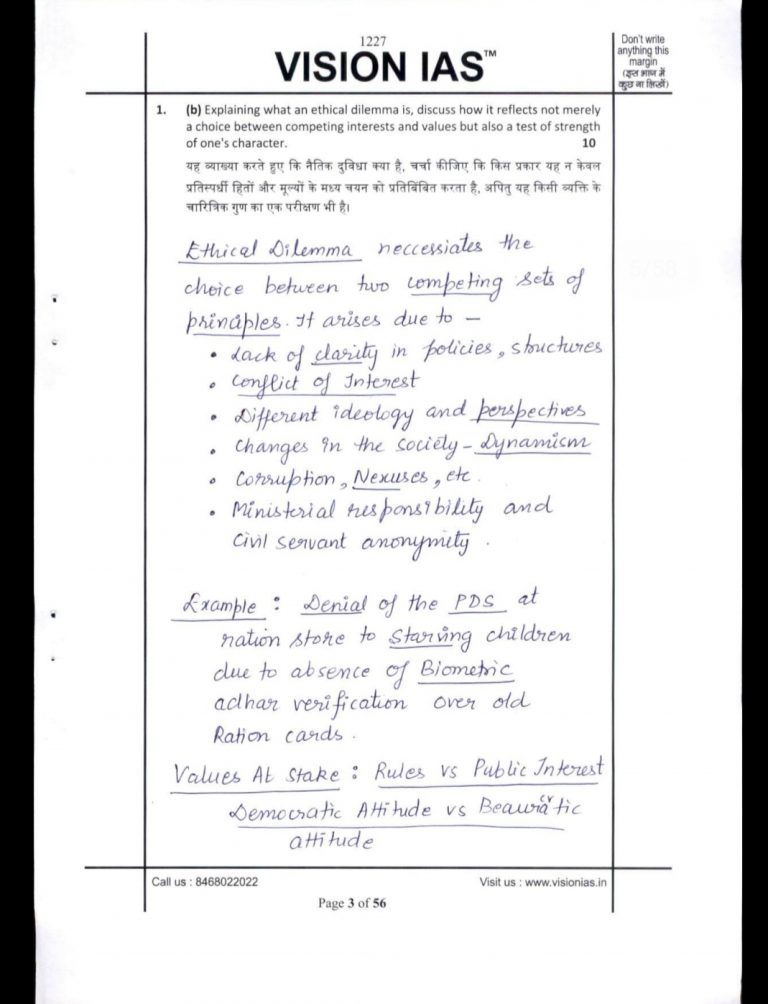 1227
VISION IAS™
Don't write
anything this
margin
(इस भाग में
कुछ ना लिखें)
1. (b) Explaining what an ethical dilemma is, discuss how it reflects not merely
a choice between competing interests and values but also a test of strength
of one's character. 10
यह व्याख्या करते हुए कि नैतिक दुविधा क्या है, चर्चा कीजिए कि किस प्रकार यह न केवल
प्रतिस्पर्धी हितों और मूल्यों के मध्य चयन को प्रतिबिंबित करता है, अपितु यह किसी व्यक्ति के
चारित्रिक गुण का एक परीक्षण भी है।
Ethical Dilemma neccessiates the
choice between two competing sets of
principles. It arises due to —
• Lack of clarity in policies, structures
• Conflict of Interest
• Different ideology and perspectives
• Changes in the society - Dynamism
• Corruption, Nexuses, etc.
• Ministerial responsibility and
civil servant anonymity.
Example : Denial of the PDS at
ration store to starving children
due to absence of Biometric
adhar verification over old
Ration cards.
Values At Stake : Rules vs Public Interest
Democratic Attitude vs Beaucratic
attitude
Call us : 8468022022
Visit us : www.visionias.in
Page 3 of 56
5/58